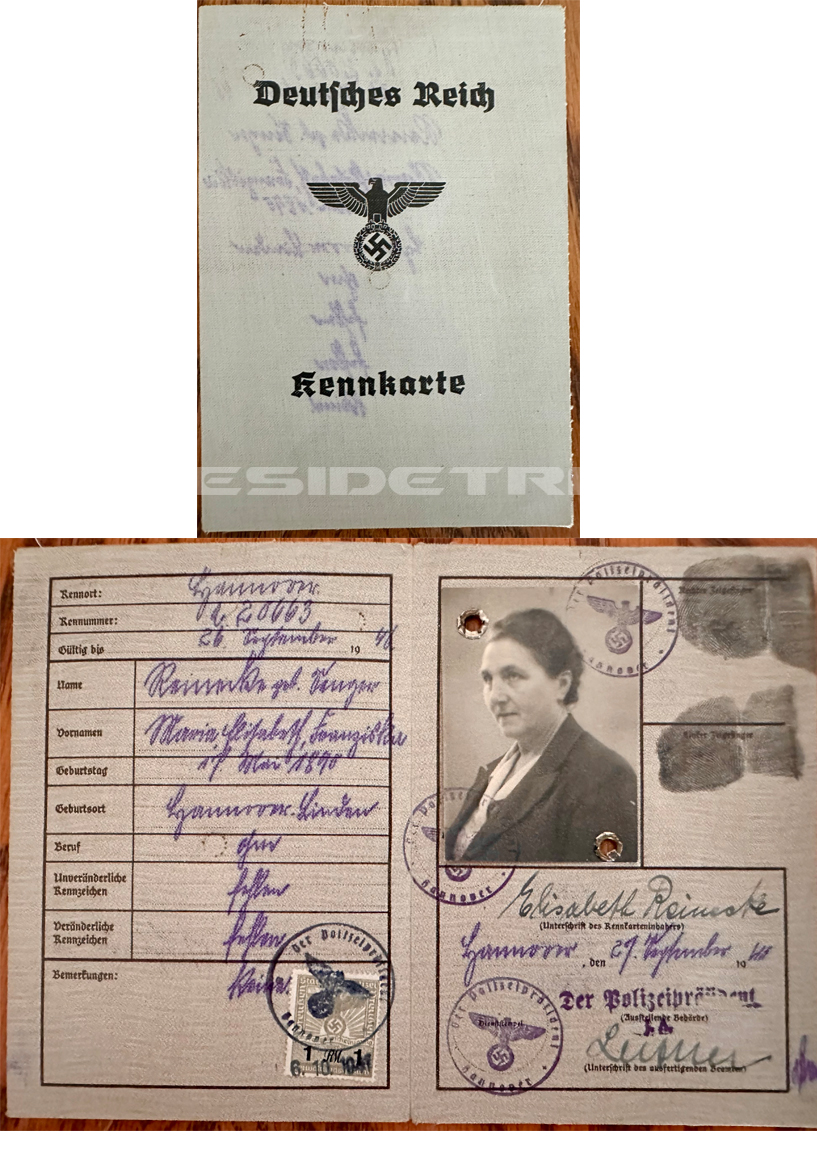 Deutsches Reich
Kennkarte
ESIDETRI
Kennort: Hannover.
Kennummer: 20663
Gültig bis 26. September 19
Name Reinecke geb. Senger
Vornamen Maria Elisabeth, Franziska
Geburtstag Mai
Geburtsort Hannover-Linden
Beruf ohne
Unveränderliche
Kennzeichen fehlen
Veränderliche
Kennzeichen fehlen
Bemerkungen: Keine
Der Polizeipräsident
Hannover
1 RM 1
6. 10. 1941
Der Polizeipräsident
Hannover
Rechter Zeigefinger
Linker Zeigefinger
Der Polizeipräsident
Hannover
Elisabeth Reinecke
(Unterschrift des Kennkarteninhabers)
Hannover, den 27. September 19
Der Polizeipräsident
(Ausstellende Behörde)
I.A.
Der Polizeipräsident
Dienststempel
Hannover
(Unterschrift des ausfertigenden Beamten)